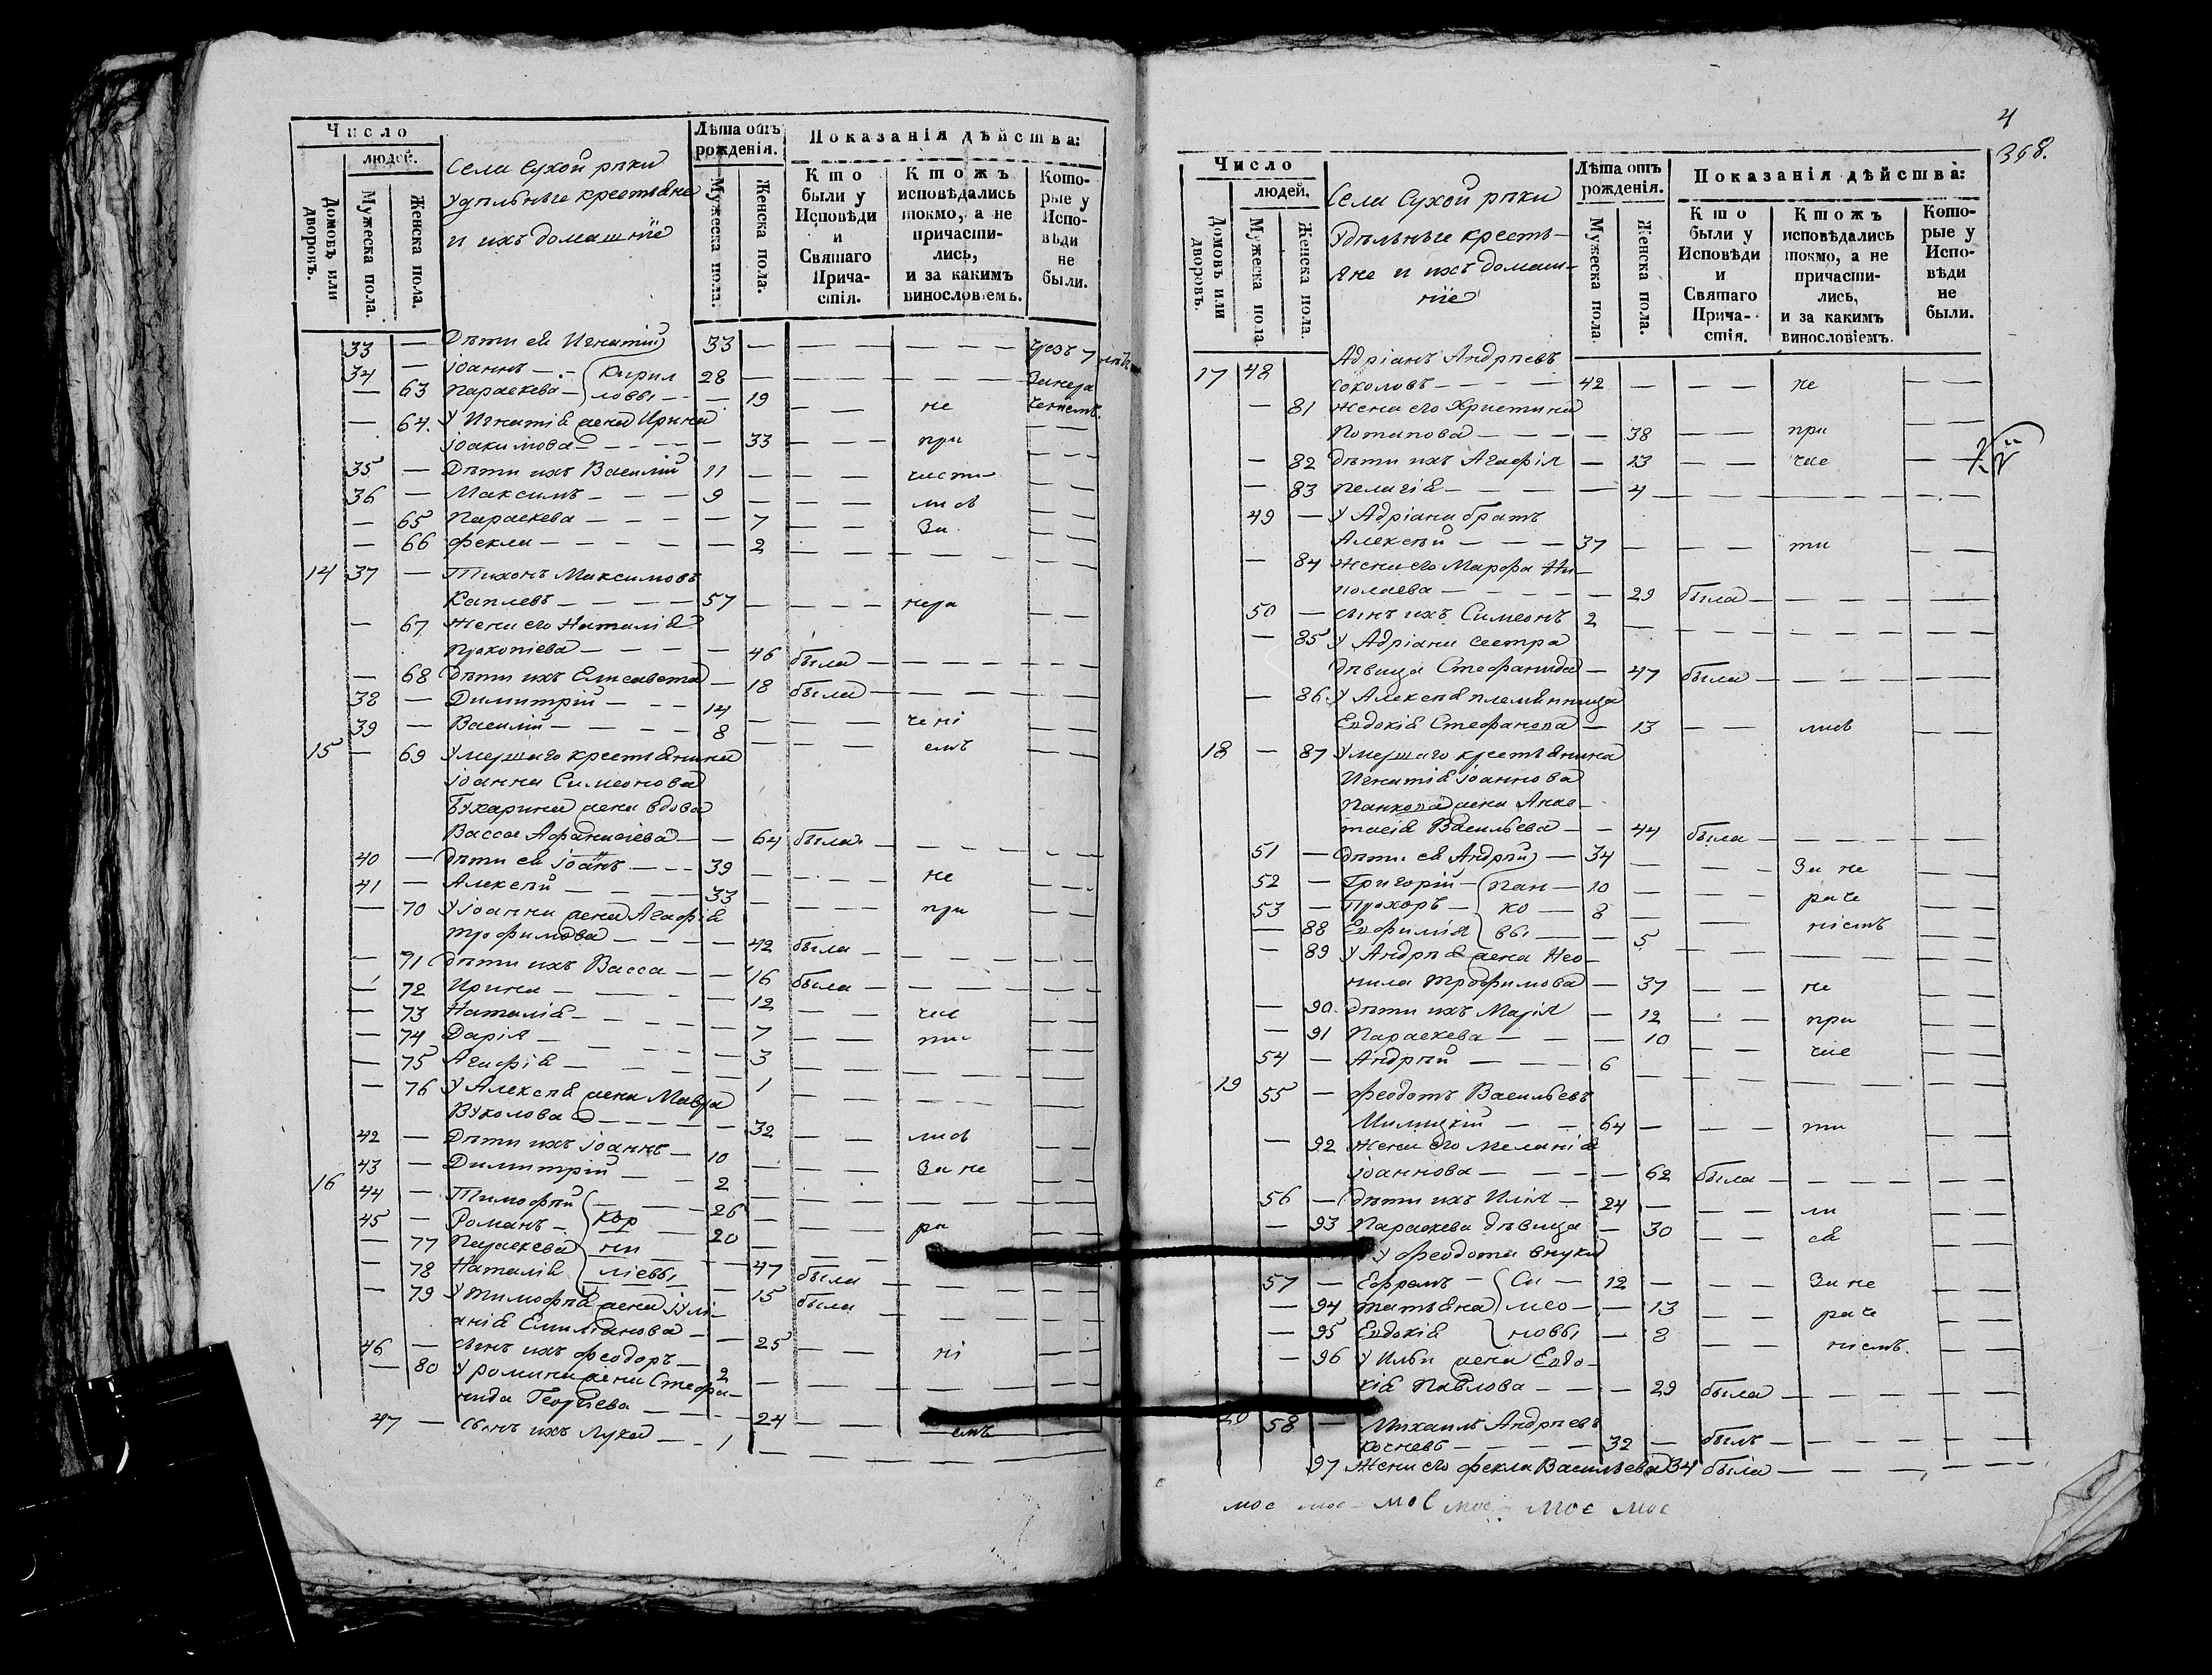 Число
людей.
Домовъ или дворовъ.
Мужеска пола.
Женска пола.
Села Сухой рѣки
Удѣльныя крестьяне
и ихъ домашніе
Лѣта отъ рожденія.
Мужеска пола.
Женска пола.
Показанія дѣйства:
Кто были у Исповѣди и Святаго Прича-стія.
Ктожъ исповѣдались токмо, а не причасти-лись, и за какимъ винословіемъ.
Кото-рые у Испо-вѣди не были.
33 — Дѣти ея Игнатій 33 —
34 — Іоаннъ — Кирил 28 —
— 63 Параскева — ловы — 19 — не
— 64. У Игнатія жена Ирина
Іоакимова — — 33 — при
35 — Дѣти ихъ Василій 11 — части
36 — Максимъ — 9 — лись
— 65 Параскева — — 7 — за
— 66 Фекла — — 2 —
14 37 — Тихонъ Максимовъ
Каплевъ — 57 — нера
— 67 Жена его Наталія
Прокопіева — — 46 была —
— 68 Дѣти ихъ Елисавета — 18 была —
38 — Димитрій — 14 — чені
39 — Василій — 8 — емъ
15 — 69 Умершаго крестьянина
Іоанна Симеонова
Бухарина жена вдова
Васса Афанасіева — — 64 была —
40 — Дѣти ея Іоанъ — 39 — не
41 — Алексѣй — 33 — при
— 70 У Іоанна жена Агафія
Трофимова — — 42 была —
— 71 Дѣти ихъ Васса — — 16 была —
— 72 Ирина — — 12 — час
— 73 Наталія — — 7 — ти
— 74 Дарія — — 3 —
— 75 Агафія — — 1 —
— 76 У Алексѣя жена Мавра
Вуколова — — 32 — лись
42 — Дѣти ихъ Іоаннъ — 10 — за не
43 — Димитрій — 2 —
16 44 — Тимофѣй — 26 — ра
45 — Романъ — Кор 20 —
— 77 Параскева — ни — 47 была —
— 78 Наталія — ліевы — 15 была —
— 79 У Тимофѣя жена Іулі-
анія Емиліанова — — 25 — ні
46 — Сынъ ихъ Феодоръ — 2 —
— 80 У Романа жена Стефа-
нида Георгіева — — 24 — емъ
47 — Сынъ ихъ Лука — 1 —
4
368.
Число
людей.
Домовъ или дворовъ.
Мужеска пола
Женска пола.
Села Сухой рѣки
Удѣльныя кресть-
яне и ихъ домаш-
ніе
Лѣта отъ рожденія.
Мужеска пола
Женска пола.
Показанія дѣйства:
Кто были у Исповѣди и Святаго Прича-стія.
Ктожъ исповѣдались токмо, а не причасти-лись, и за какимъ винословіемъ.
Кото-рые у Испо-вѣди не были.
17 48 Адріанъ Андрѣевъ
Соколовъ — 42 — не
— 81 Жена его Христина
Потапова — — 38 — при
— 82 Дѣти ихъ Агафія — 13 — час
— 83 Пелагія — — 4 —
49 — У Адріана братъ
Алексѣй — 37 — ти
— 84 Жена его Марфа Ни-
колаева — — 29 была —
50 — Сынъ ихъ Симеонъ 2 —
— 85 У Адріана сестра
дѣвица Стефанида — 47 была —
— 86. У Алексѣя племянница
Евдокія Стефанова — 13 — лись
18 — 87 Умершаго крестьянина
Игнатія Іоаннова
Панкова жена Анас-
тасія Васильева — — 44 была —
51 — Дѣти ея Андрѣй — 34 — за не
52 — Григорій — Пан — 10 — раче
53 — Прохоръ — ко — 8 — ніемъ
— 88 Евфимія — вы — 5 —
— 89 У Андрѣя жена Нео-
нила Трофимова — 37 — не
— 90. Дѣти ихъ Марія — 12 — при
— 91 Параскева — — 10 — час
54 — Андрѣй — 6 —
19 55 — Феодотъ Васильевъ
Милицкій — 64 — ти
— 92 Жена его Меланія
Іоаннова — — 62 была —
56 — Дѣти ихъ Илія — 24 — ли
— 93 Параскева дѣвица — 30 — сь
У Феодота внуки
57 — Ефремъ — Си — 12 — за не
— 94 Татьяна — мео — 13 — раче
— 95 Евдокія — новы — 8 — ніемъ.
— 96 У Ильи жена Евдо-
кія Павлова — — 29 была —
20 58 — Михаилъ Андрѣевъ
Косневъ — 32 — былъ —
97 Жена его Фекла Васильева 34 была —
мос мос мос мос мос мос